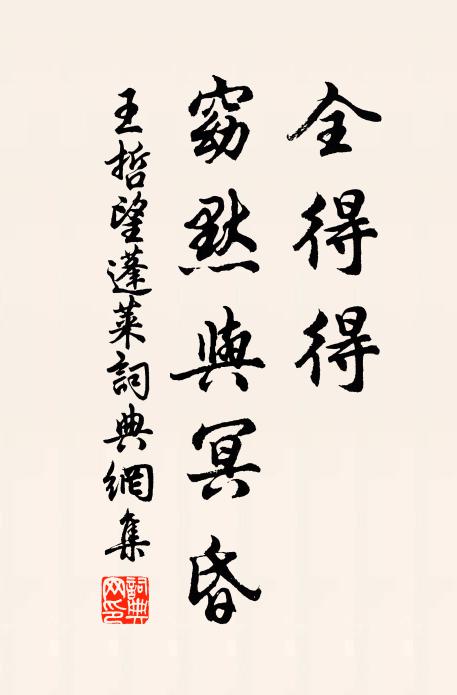 全得得
窈默與冥昏
王哲望蓬萊詞典網集
詞典
网印